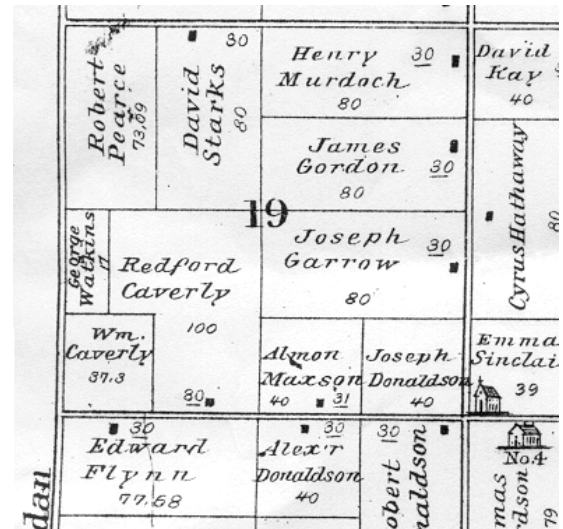 Robert
Pearce
73.09
30
David
Starks
80
Henry 30
Murdoch
80
David
Kay
40
James
Gordon 30
80
Cyrus Hathaway
80
19
George
Watkins
17
Redford
Caverly
100
80
Joseph 30
Garrow
80
Wm.
Caverly
37.3
Almon
Maxson
40 31
Joseph
Donaldson
40
Emma
Sinclai
39
30
Edward
Flynn
77.58
30
Alex'r
Donaldson
40
30
obert
naldson
No.4
mas
dson
79
dan